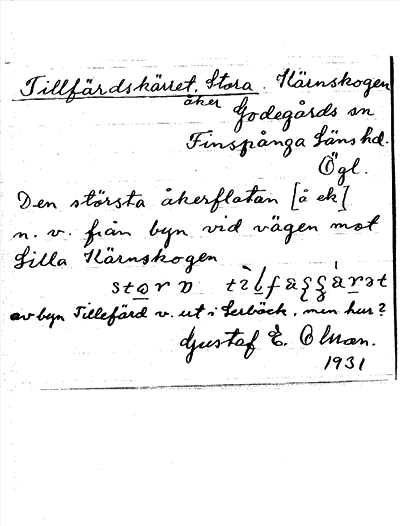 Tillfärdskärret, Stora. Kärnskogen
åker Godegårds sn
Finspånga läns hd.
Ögl.
Den största åkerflatan [å ek]
n. v. från byn vid vägen mot
Lilla Kärnskogen
av byn Tillefärd v. ut i Lerbäck, men hur?
Gustaf E. Olman.
1931